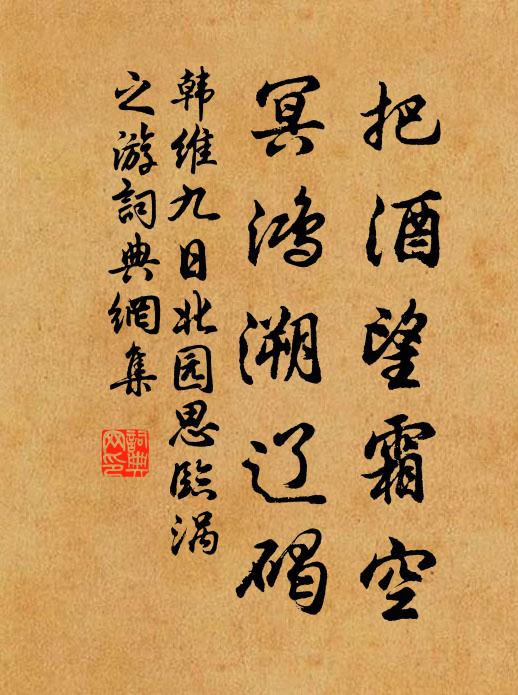 把酒望霜空
冥鸿溯辽碣
韩维九日北园思临涡
之游詞典網集
詞典